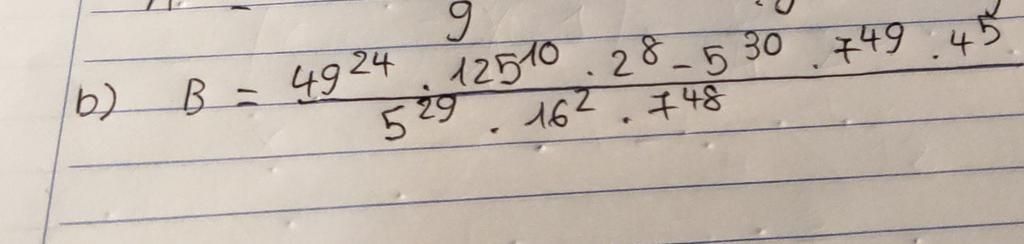 9
b) B = 49^24 . 125^10 . 2^8 - 5^30 . 7^49 . 4^5
5^29 . 16^2 . 7^48